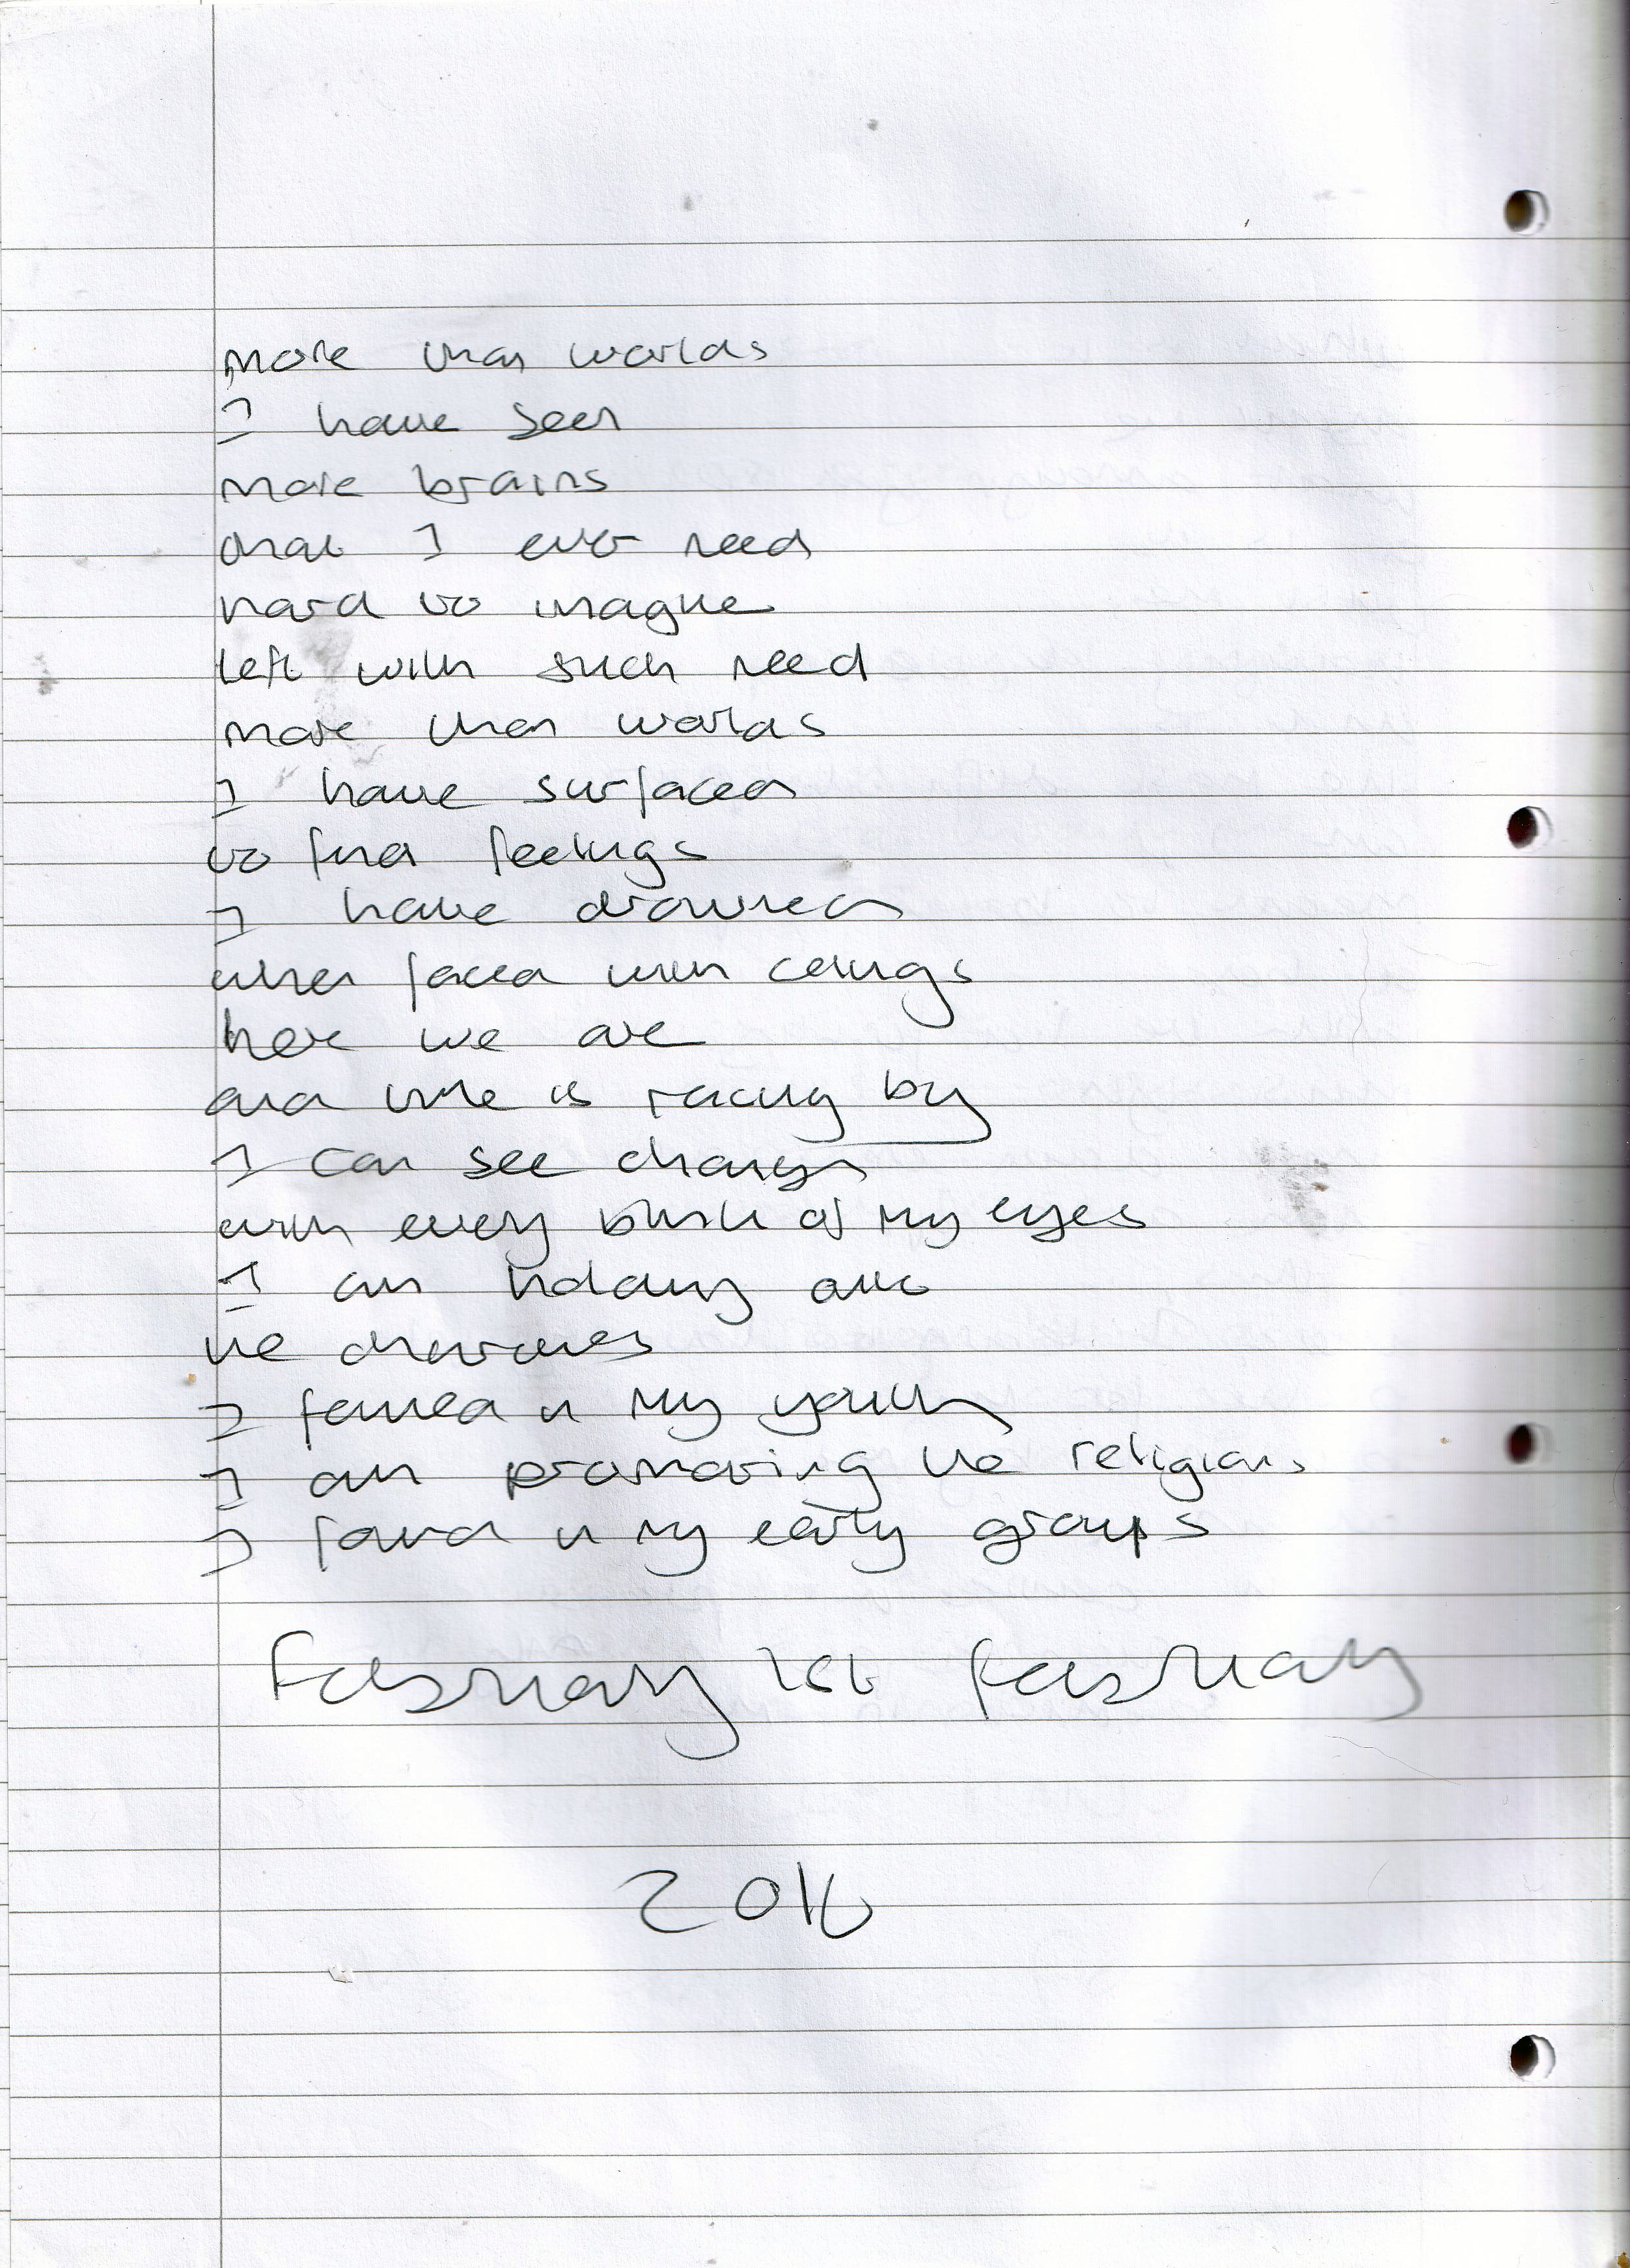 more than worlds
I have seen
more brains
that I ever need
hard to imagine
left with such need
more than worlds
I have surfaced
to find feelings
I have drowned
when faced with ceilings
here we are
and time is racing by
I can see changes
with every blink of my eyes
I am holding onto
the
I in my youth
I am promoting the religions
I found in my early groups
February 1st February
2016